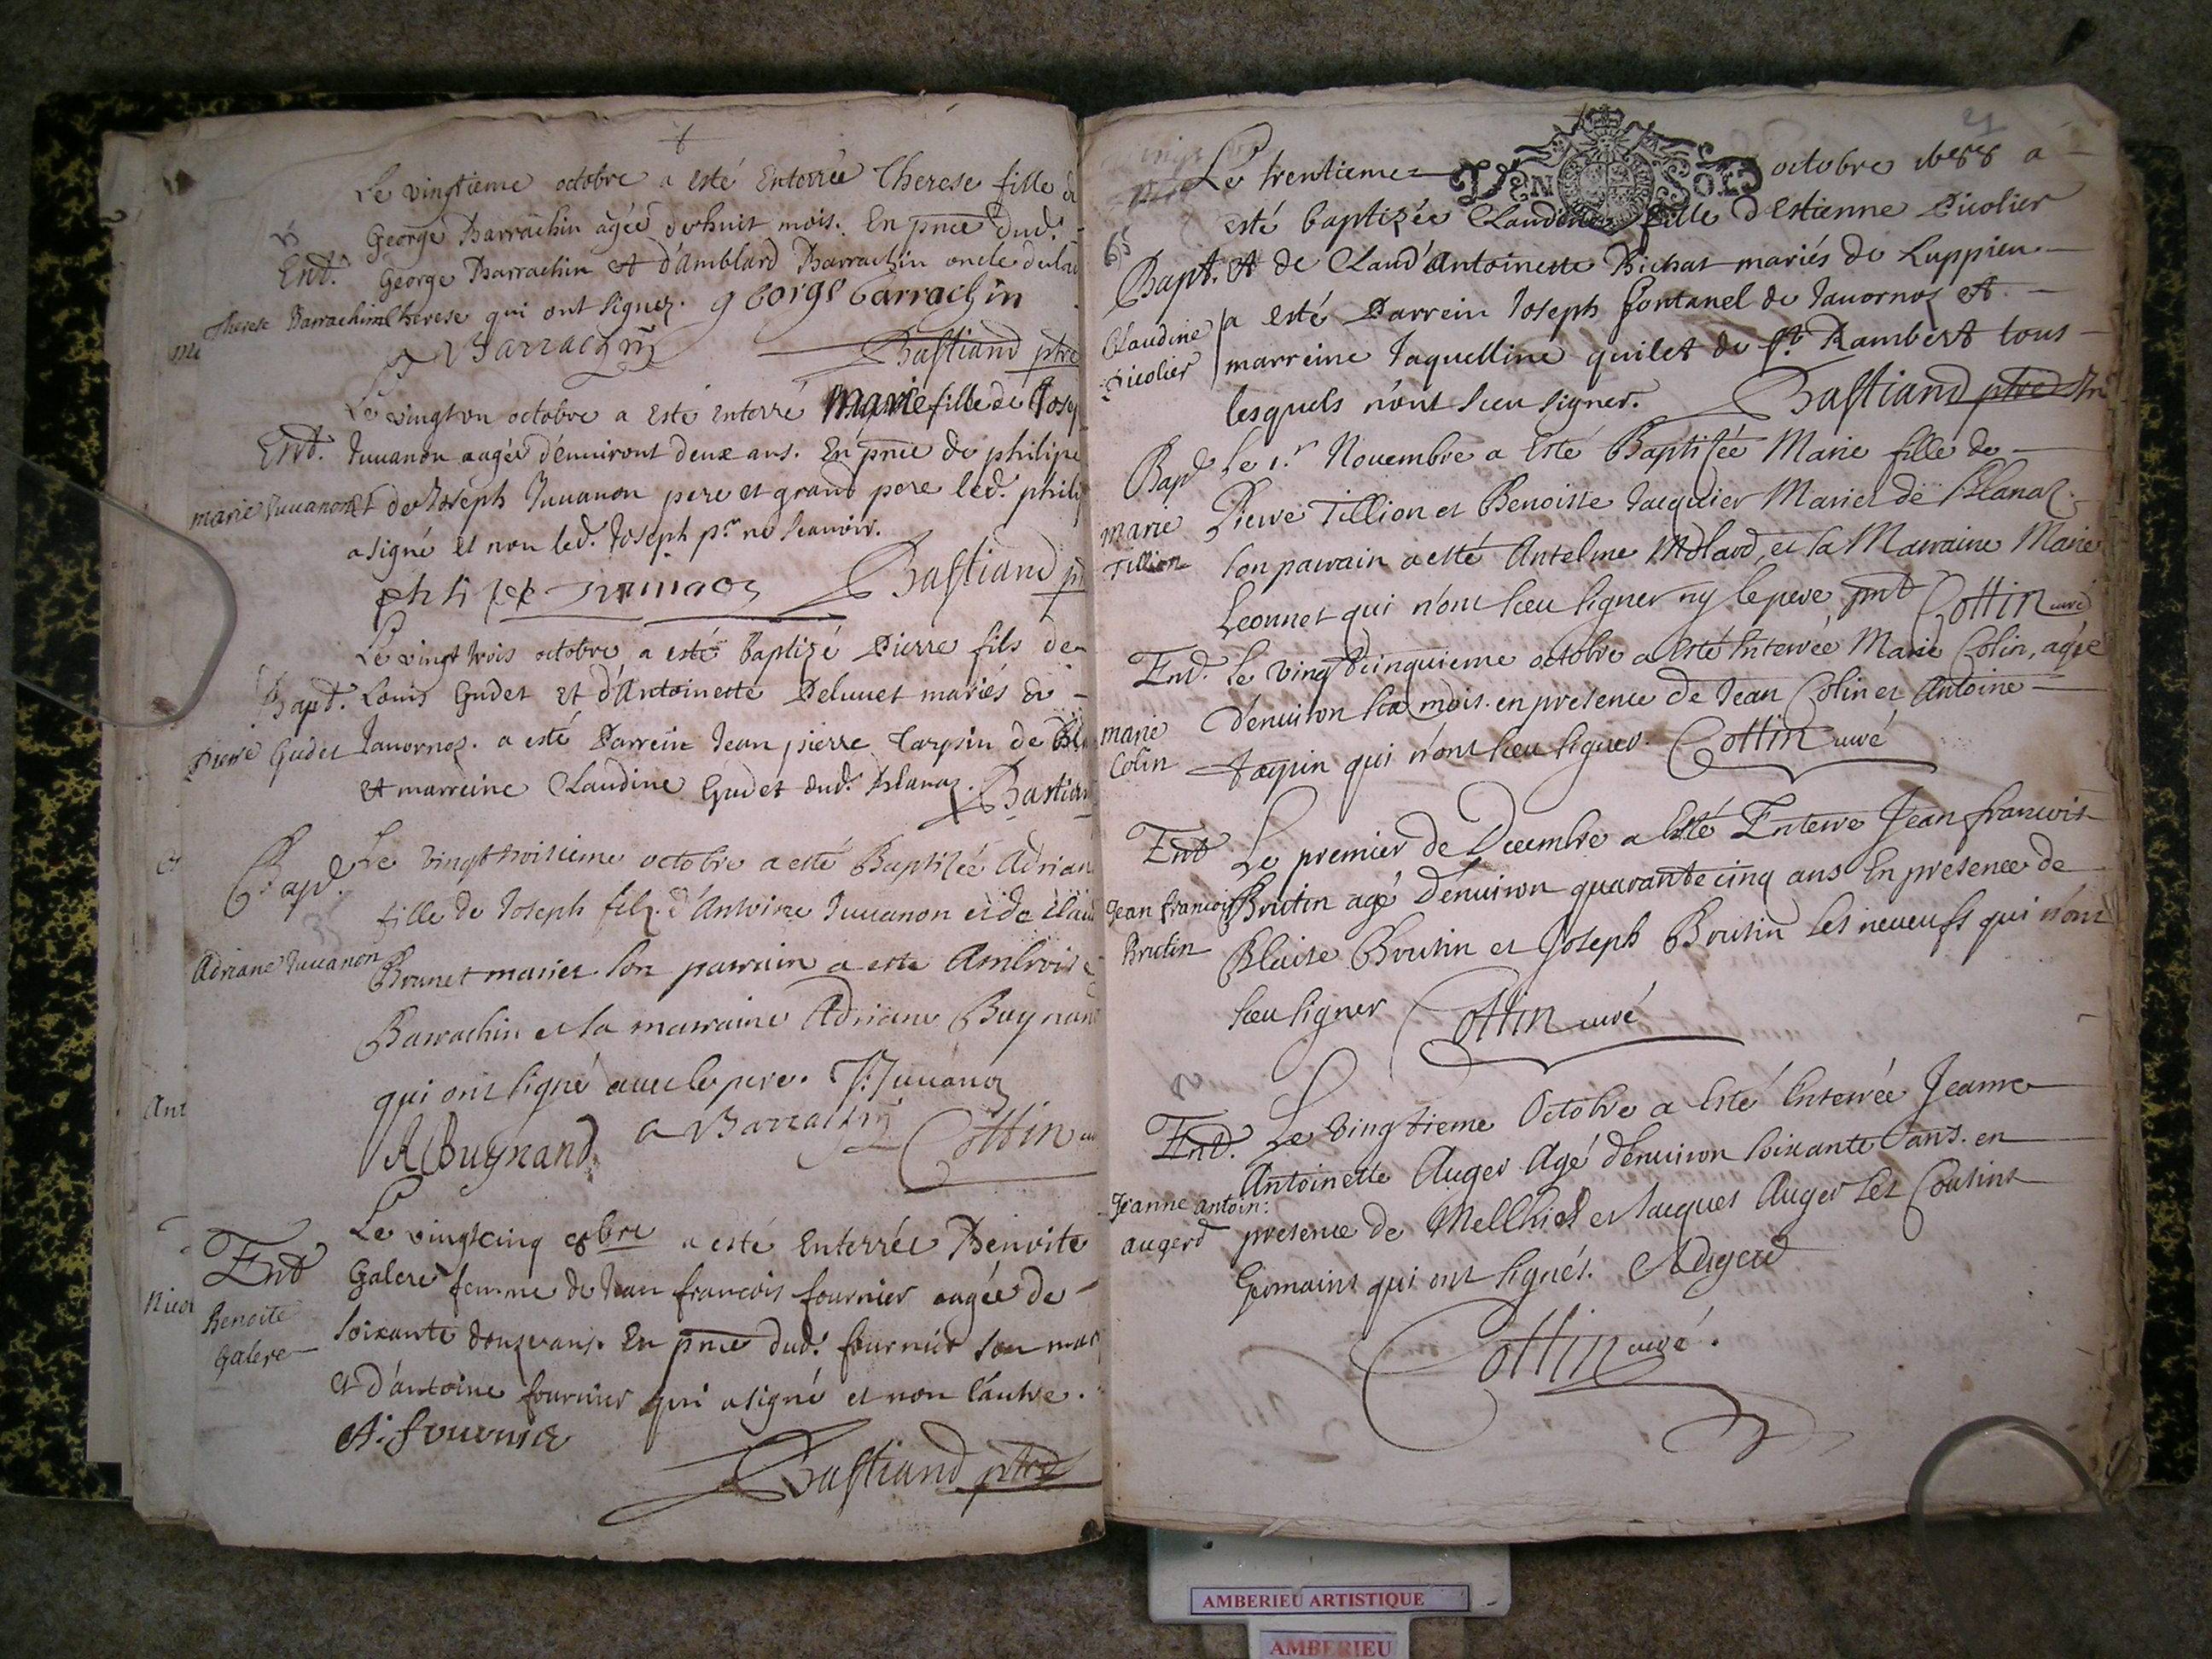 Le vingtieme octobre a esté Enterrée Therese fille de
George Barrachin agée de huit mois. En pnce dud.
Ent. George Barrachin et d'Amblard Barrachin oncle de lad
Therese Barrachin Therese qui ont signez. george barrachin
a Barrachin Bastiand ptre
Le vingt un octobre a esté enterré Marie fille de Josep
Ent. Juuanon aagée d'enuiront deux ans. En pnce de philipe
marie Juuanon et de Joseph Juuanon pere et grand pere led. philip
a signé et non led. Joseph pr. ne scauoir.
philipe Juuanon Bastiand
Le vingt trois octobre a esté baptizé Pierre fils de
Bapt. Louis Gudet et d'Antoinette Deluuet mariés de
Pierre Gudet Jauornoz. a esté Parrein Jean pierre Carpin de
et marreine Claudine Gudet dud. Blanaz. Bastian
Bapt. Le vingt troisieme octobre a esté Baptisée Adrian
fille de Joseph filz d'Antoine Juuanon et de Clau
Adriane Juuanon Brunet mariez son parrain a esté Ambroise
Barrachin et la marraine Adriane Buynand
qui ont signé auec le pere. J. Juuanon
A Buynand a Barrachin Cottin
Le vingt cinq 8bre a esté Enterrée Benoite
Ent Galere femme de Jean francois fournier aagée de
Benoite
Galere
soixante douze ans. En pnce dud. fournier son mar
et d'antoine fournier qui a signé et non l'autre.
A. fournier
Bastiand ptre
Ant
Nicol
Le trentieme octobre a
esté baptizée Claudine fille d'Estienne Picolier
65
Bapt. et de Claud'Antoinette Bichat mariés de Luppieu
Claudine a esté Parrein Joseph fontanel de Jauornoz et
Picolier marreine Jaquelline quilet de St. Rambert tous
lesquels n'ont sceu signer. Bastiand ptre
Bapt Le 1.r Nouembre a esté Baptisée Marie fille de
marie Pierre Tillion et Benoiste Jacquier Mariez de Blanaz.
Tillion son parrain a esté Antelme Molard, et la Marraine Marie
Leonnet qui n'ont sceu signer ny le pere pnt Cottin curé
Ent. Le vingt cinquieme octobre a esté Enterrée Marie Colin, agée
marie d'enuiron six mois. en presence de Jean Colin et Antoine
Colin Jaquin qui n'ont sceu signer. Cottin curé
Ent Le premier de Decembre a esté Enterre Jean francois
Jean francois Brutin agé d'enuiron quarante cinq ans En presence de
Brutin Blaise Brutin et Joseph Brutin ses neueufs qui n'ont
sceu signer Cottin curé
Ent. Le vingtieme Octobre a esté Enterrée Jeanne
Antoinette Auger Agé d'enuiron soixante ans. en
Jeanne antoin: presence de Melchiol et Jacques Auger ses Cousins
augerd Germains qui ont signés. Augerd
Cottin curé.
AMBERIEU ARTISTIQUE
AMBERIEU